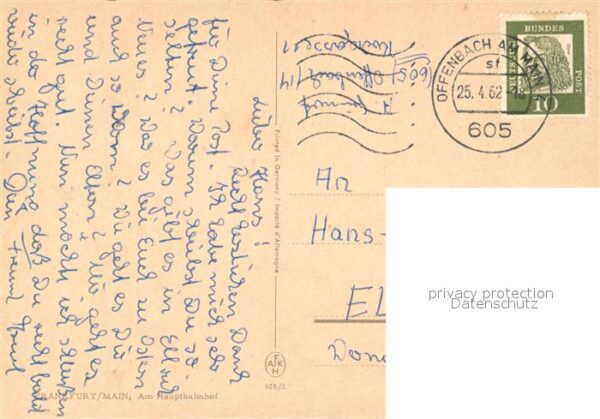 Lieber Hans!
Recht herzlichen Dank
für Deine Post. Ich habe mich sehr
gefreut. Warum schreibst Du so
selten? Was gibt es in Ell
Neues? Was es bei Euch zu Ostern
auch so warm? Wie geht es Dir
und Deinen Eltern? Mir geht es
recht gut. Nun möcht ich schließen
in der Hoffnung daß Du recht bald
wieder schreibst. Dein Freund
FRANKFURT/MAIN, Am Hauptbahnhof
Printed in Germany / Importé d'Allemagne
AFKH
925/2
605 Offenbach/M
OFFENBACH AM MAIN
sf
25.4.62
605
DEUTSCHE BUNDESPOST
Dürer
10
An
Hans-
EL
privacy protection
Datenschutz